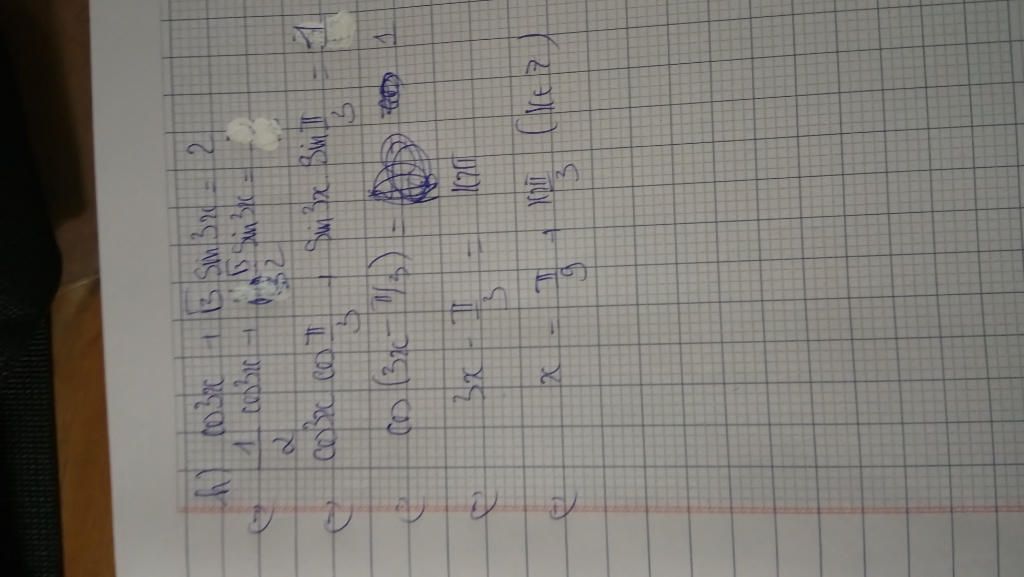 h) cos3x + √3 sin3x = 2
⇔ 1/2 cos3x + √3/2 sin3x =
⇔ cos3x cos π/3 + sin3x sin π/3 = 1
⇔ cos(3x - π/3) = 1
⇔ 3x - π/3 = k2π
⇔ x = π/9 + k2π/3 (k∈Z)